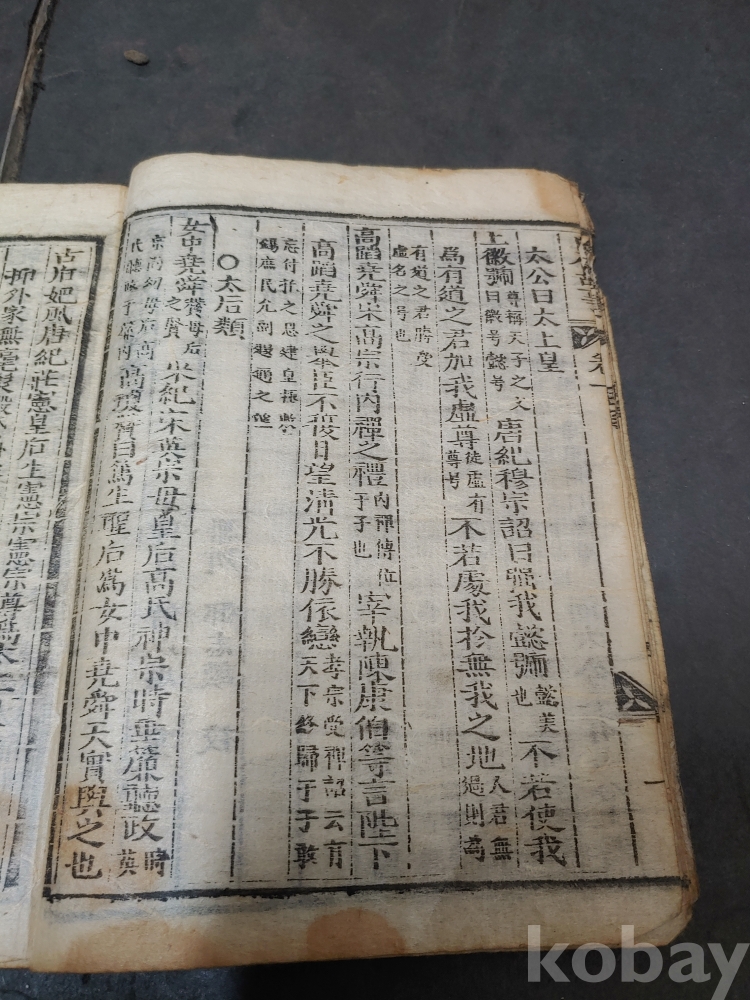 太公曰太上皇
上徽號尊稱天子之父曰徽号懿号唐紀穆宗詔曰強我懿號懿美也不若使我
爲有道之君加我虛尊徒虛有尊号不若處我於無我之地人君無過則爲
有道之君勝受虛名之号也
高蹈堯舜宋高宗行內禪之禮內禪傳位于子也宰執陳康伯等言陛下
高蹈堯舜之擧臣不獲日望淸光不勝依戀孝宗受禪詔云有天下終歸于子敢
忘付托之恩建皇極
錫庶民允
〇太后類
女中堯舜贊母后之賢宋紀宋英宗母皇后高氏神宗時垂簾聽政時英
宗尙幼母后高氏聽政于簾內高瓊贊曰爲生聖后爲女中堯舜天實與之也
古唐妃風唐紀莊憲皇后生憲宗憲宗尊爲太
抑外家無
卷一
一
kobay